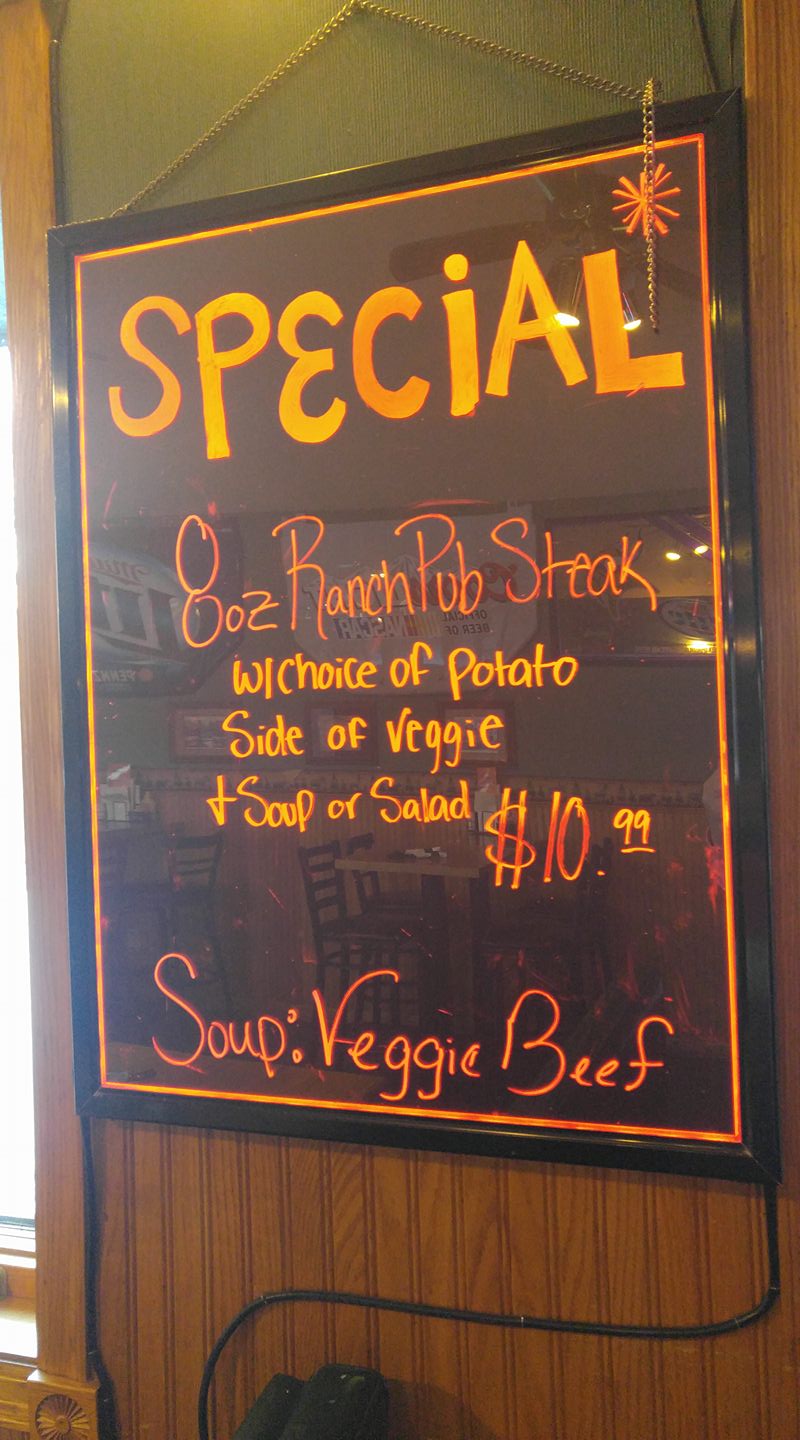 SPECiAL
8oz Ranch Pub Steak
w/choice of potato
Side of Veggie
+ Soup or Salad $10.99
Soup: Veggie Beef